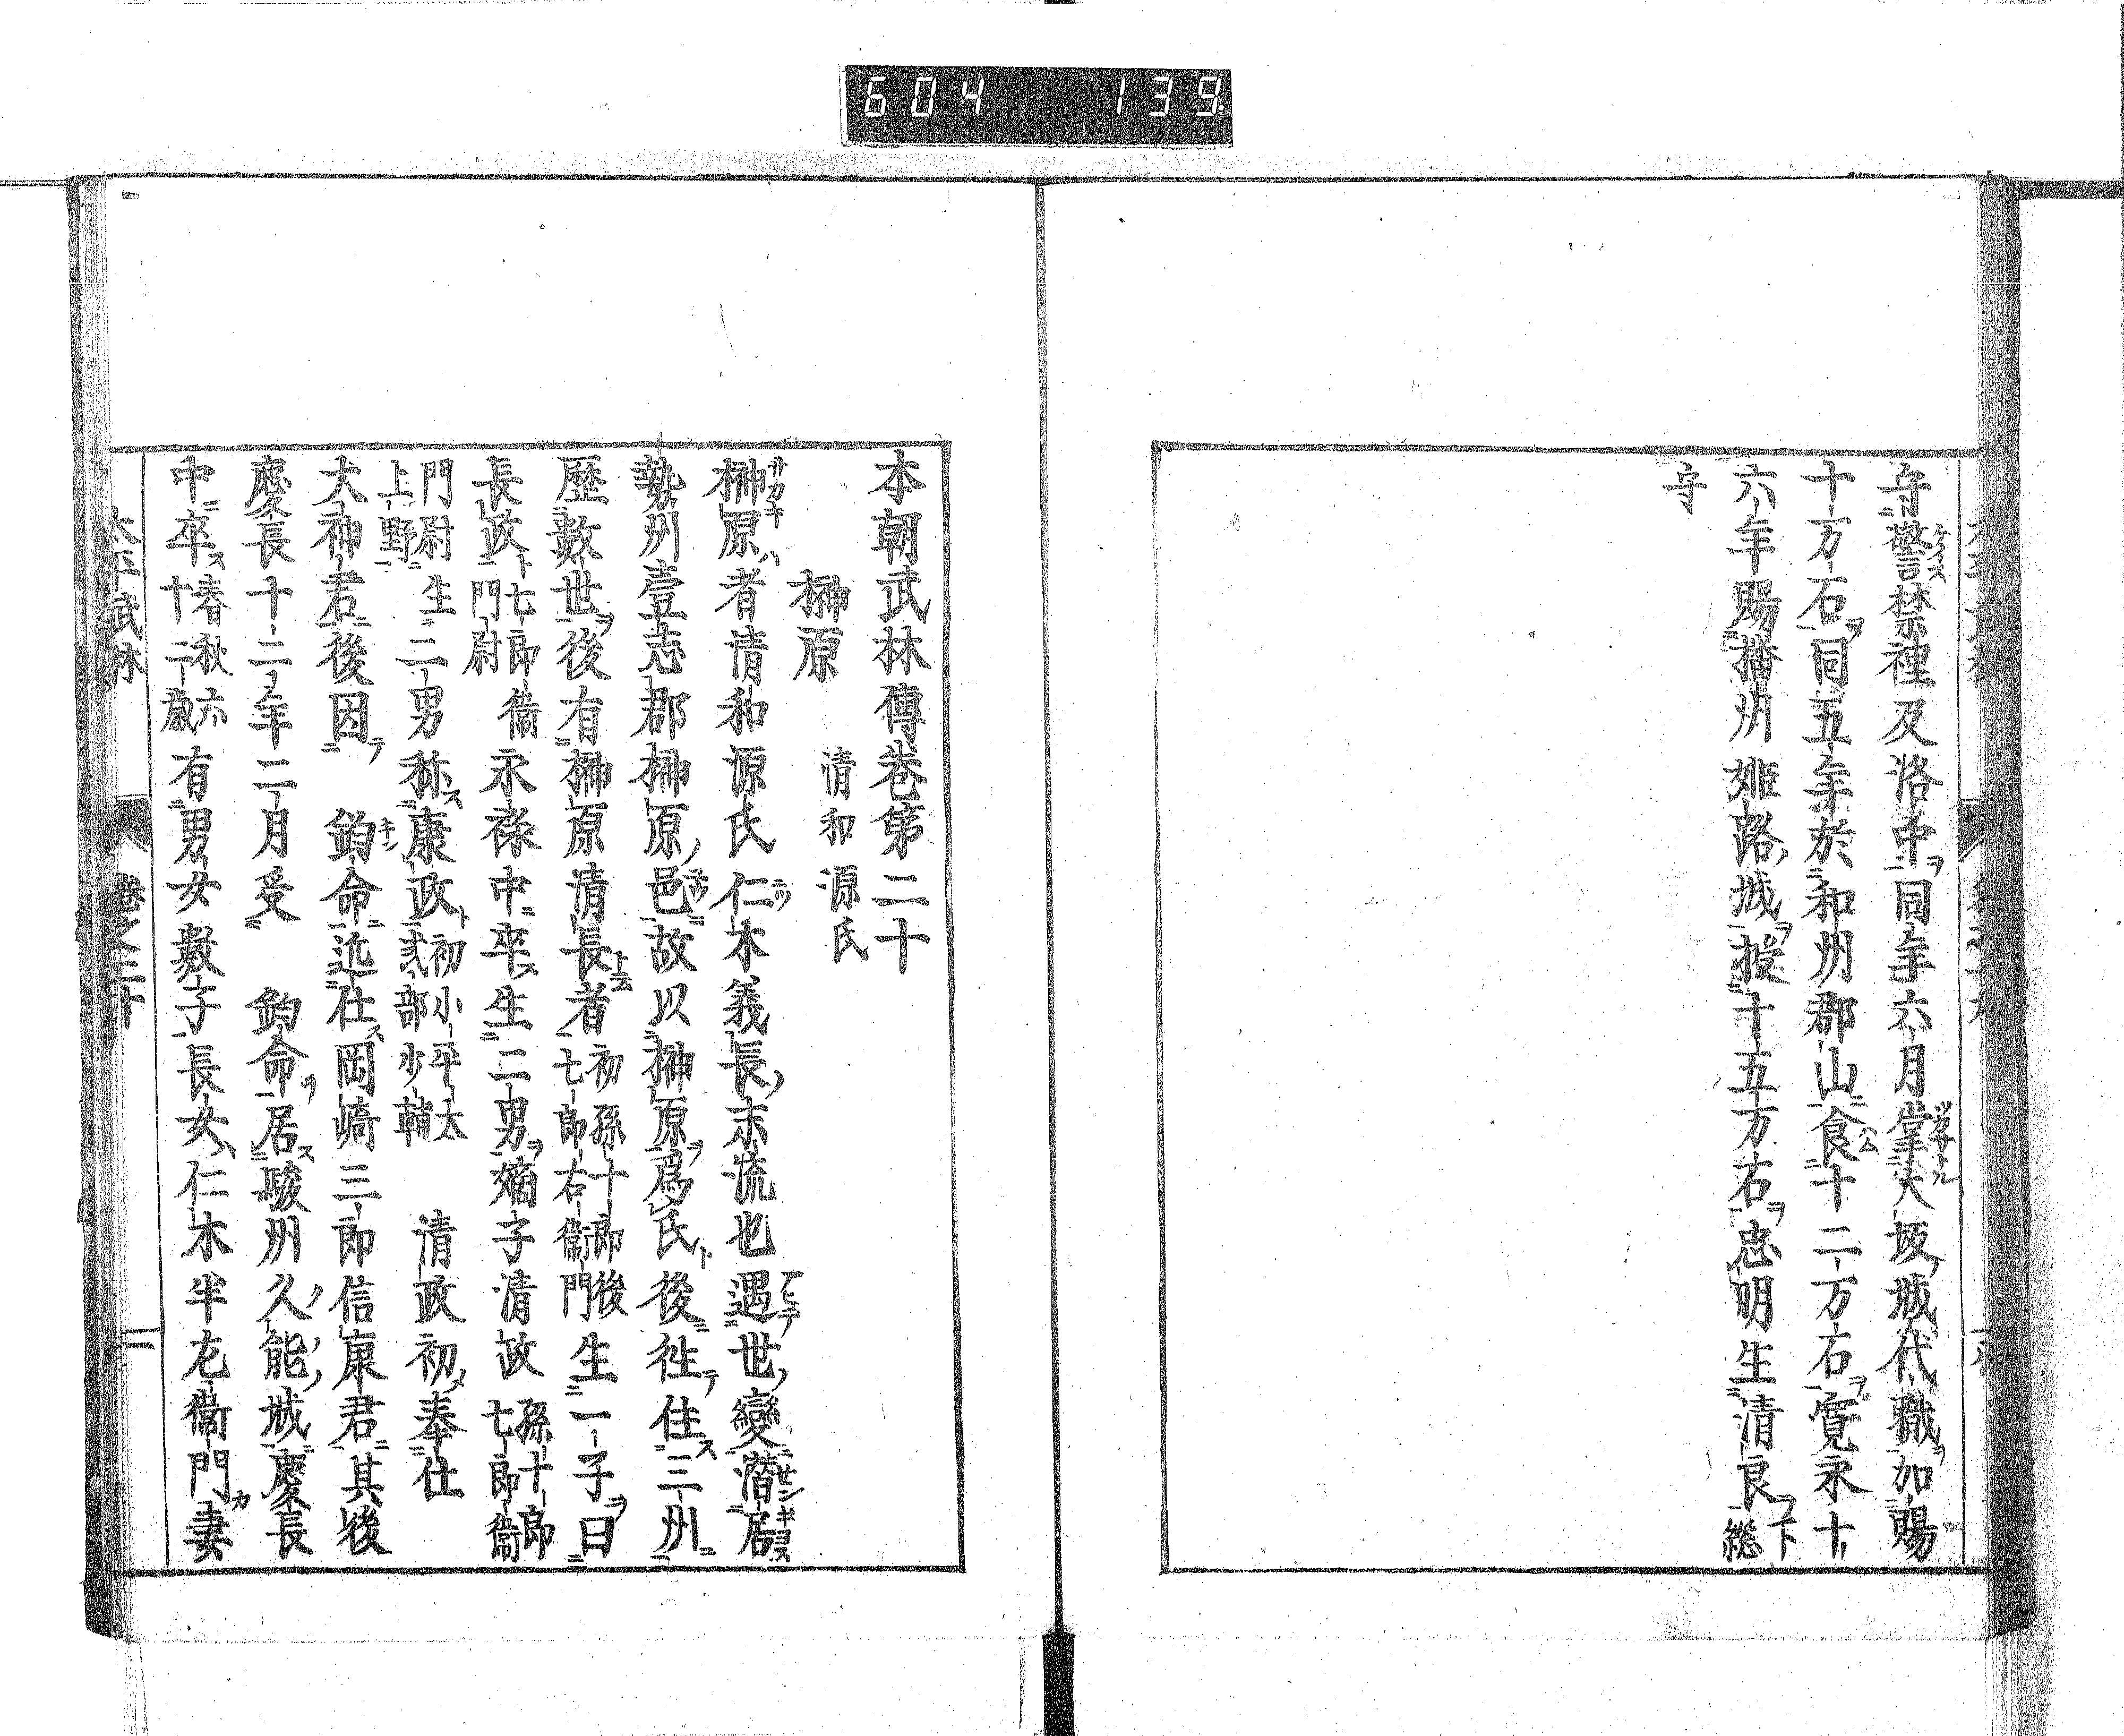 604 139
守警禁裡及洛中同年六月掌大坂城代職加賜
十万石同五年於和州郡山食十二万石寛永十
六年賜播州姫路城授十五万石忠明生清良下総
守
本朝武林傳巻第二十
榊原 清和源氏
榊原者清和源氏仁木義長末流也遇世變潜居
勢州壹志郡榊原邑故以榊原爲氏後徃住三州
歴數世後有榊原清長者初孫十郎後七郎右衞門生一子曰
長政七郎衞門尉永禄中卒生二男嫡子清政孫十郎七郎衞
門尉生二男称康政初小平太式部少輔 清政初奉仕
上野
大神君後因 鈞命近仕岡崎三郎信康君其後
慶長十二年二月受 鈞命居駿州久能城慶長
中卒春秋六十二歳有男女數子長女仁木半左衞門妻
本平武林 巻之二十 一